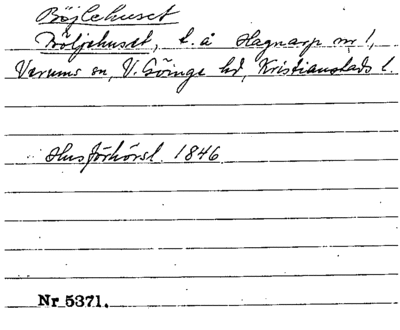 Böjlehuset
Böljehuset, t. å Hagnarp nr 1,
Verums sn, V. Göinge hd, Kristianstads l.
Husförhörsl. 1846
Nr 5371.